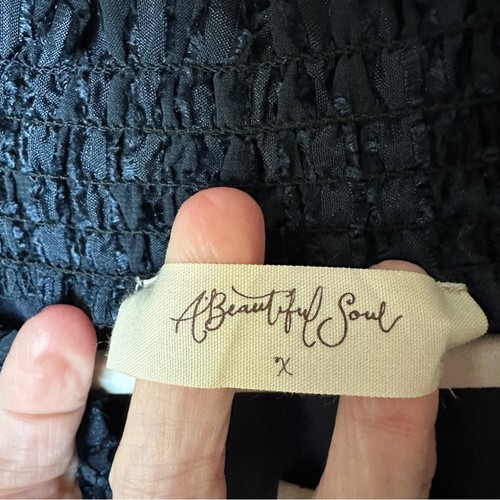 A Beautiful Soul
X